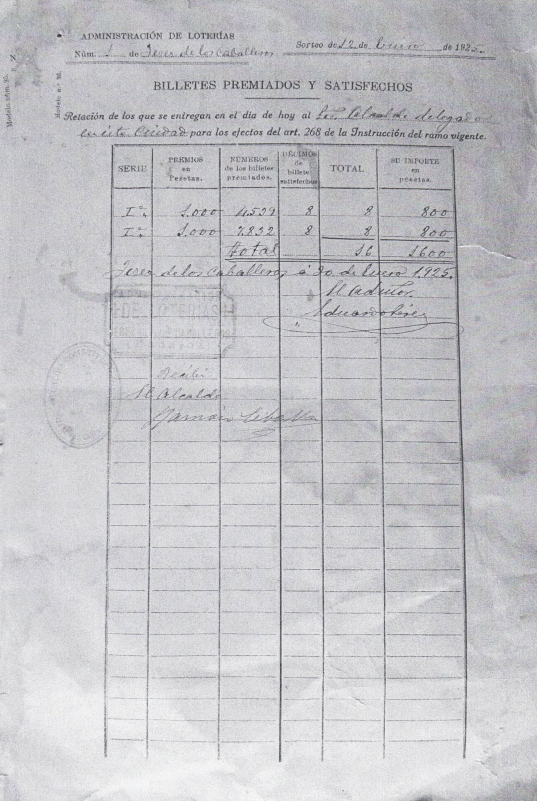 ADMINISTRACIÓN DE LOTERÍAS
Núm. 1 de Jerez de los Caballeros Sorteo de 12 de Enero de 1925.
BILLETES PREMIADOS Y SATISFECHOS
Relación de los que se entregan en el día de hoy al Sr. Alcalde delegado
en esta Ciudad para los efectos del art. 268 de la Instrucción del ramo vigente.
SERIE PREMIOS en Pesetas. NÚMEROS de los billetes premiados. DÉCIMOS de billete satisfechos TOTAL SU IMPORTE en pesetas.
1ª. 1.000 4.539 8 8 800
1ª. 1.000 7.832 8 8 800
Total 16 1600
Jerez de los Caballeros á 20 de Enero 1925.
El Admtor.
Eduardo
DE LOTERIAS
Recibí
El Alcalde
Ramón Ceballos